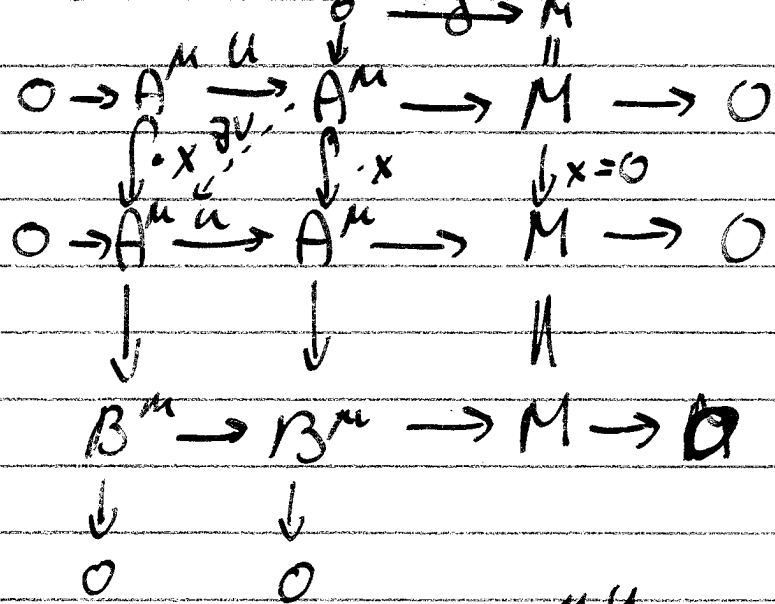 0 → M
↓ ‖
0 → A^μ u→ A^μ → M → 0
·x ∃v ·x ↓ x=0
0 → A^μ u→ A^μ → M → 0
↓ ↓ ‖
B^μ → B^μ → M → 0
↓ ↓
0 0